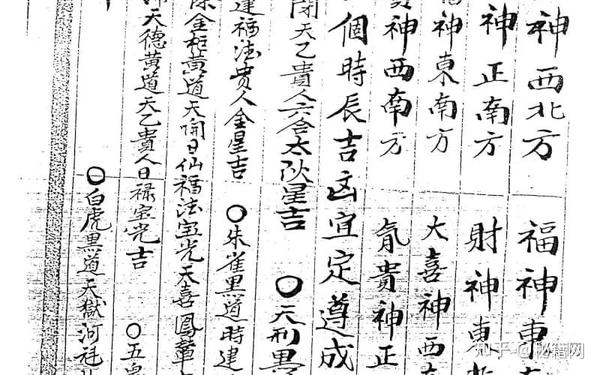 神西北方 福神東
神正南方 財神東北
福神東南方 大喜神西南
神西南方 氜貴神正
個時辰吉凶宜定遵成
閉天乙貴人六合太阴星吉 〇天刑黑
建福法贵人金星吉 〇朱雀黑道時建
除金柜黄道天開日仙福法宝光天喜鳳輦
天德黄道天乙貴人日禄宝光吉 〇五皇
〇白虎黑道天獄河
知乎 @秘籍网